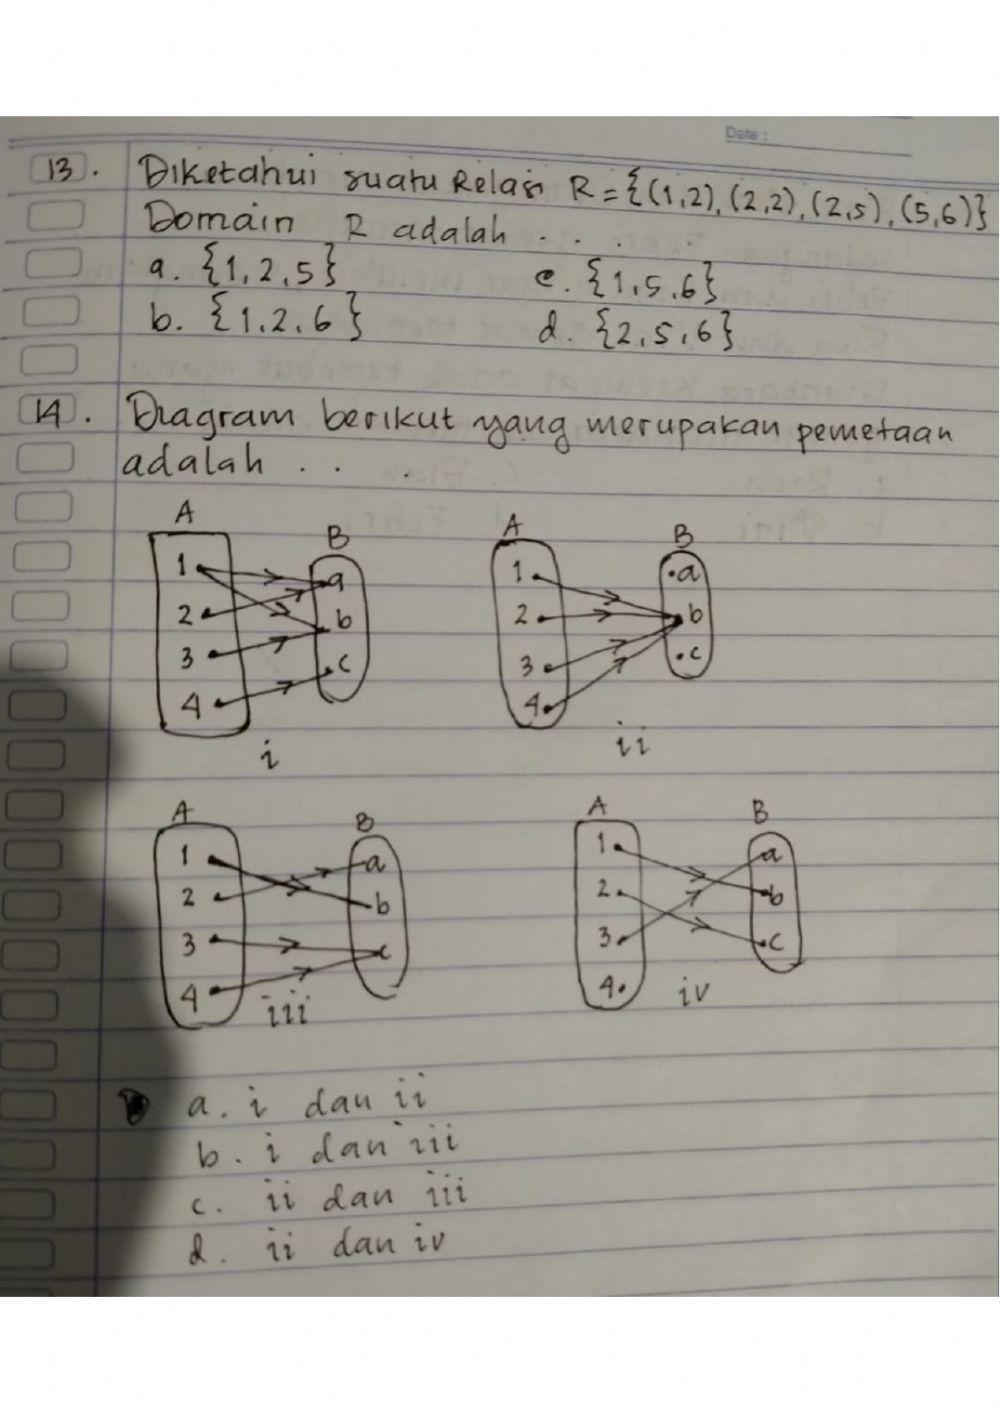 Date :
13. Diketahui suatu Relasi R = {(1,2), (2,2), (2,5), (5,6)}
Domain R adalah . . . .
a. {1,2,5} c. {1,5,6}
b. {1,2,6} d. {2,5,6}
14. Diagram berikut yang merupakan pemetaan
adalah . . .
A B
1 a
2 b
3 c
4
i
A B
1 a
2 b
3 c
4
ii
A B
1 a
2 b
3 c
4
iii
A B
1 a
2 b
3 c
4
iv
a. i dan ii
b. i dan iii
c. ii dan iii
d. ii dan iv